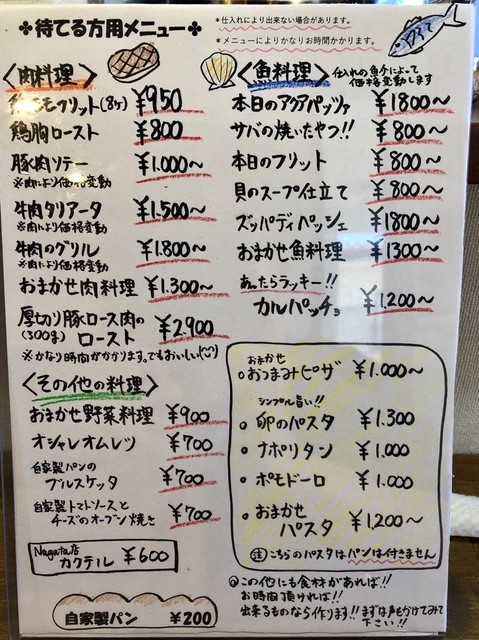 ✤待てる方用メニュー✤
*仕入れにより出来ない場合があります。
*メニューによりかなりお時間かかります。
〈肉料理〉
モフリット(8ヶ) ¥950
鶏胸ロースト ¥800
豚肉ソテー ¥1.000〜
※肉により価格変動
牛肉タリアータ ¥1.500〜
※肉により価格変動
牛肉のグリル ¥1.800〜
※肉により価格変動
おまかせ肉料理 ¥1.300〜
厚切り豚ロース肉の
(300g) ロースト ¥2.900
※かなり時間がかかります。でもおいしい
〈その他の料理〉
おまかせ野菜料理 ¥900
オシャレオムレツ ¥700
自家製パンの
ブルスケッタ ¥700
自家製トマトソースと
チーズのオーブン焼き ¥700
Nagata店
カクテル ¥600
自家製パン ¥200
〈魚料理〉
仕入れの魚介によって
価格変動します
本日のアクアパッツァ ¥1800〜
サバの焼いたやつ!! ¥800〜
本日のフリット ¥800〜
貝のスープ仕立て ¥800〜
ズッパディペッシェ ¥1800〜
おまかせ魚料理 ¥1300〜
あったらラッキー!!
カルパッチョ ¥1,200〜
おまかせ
○おつまみピザ ¥1.000〜
シンプル旨い!!
○卵のパスタ ¥1.300
○ナポリタン ¥1.000
○ポモドーロ ¥1.000
○おまかせ
パスタ ¥1,200〜
注こちらのパスタはパンは付きません
◎この他にも食材があれば!!
お時間頂ければ!!
出来るものなら作ります!!まずは声をかけてみて
下さい!!